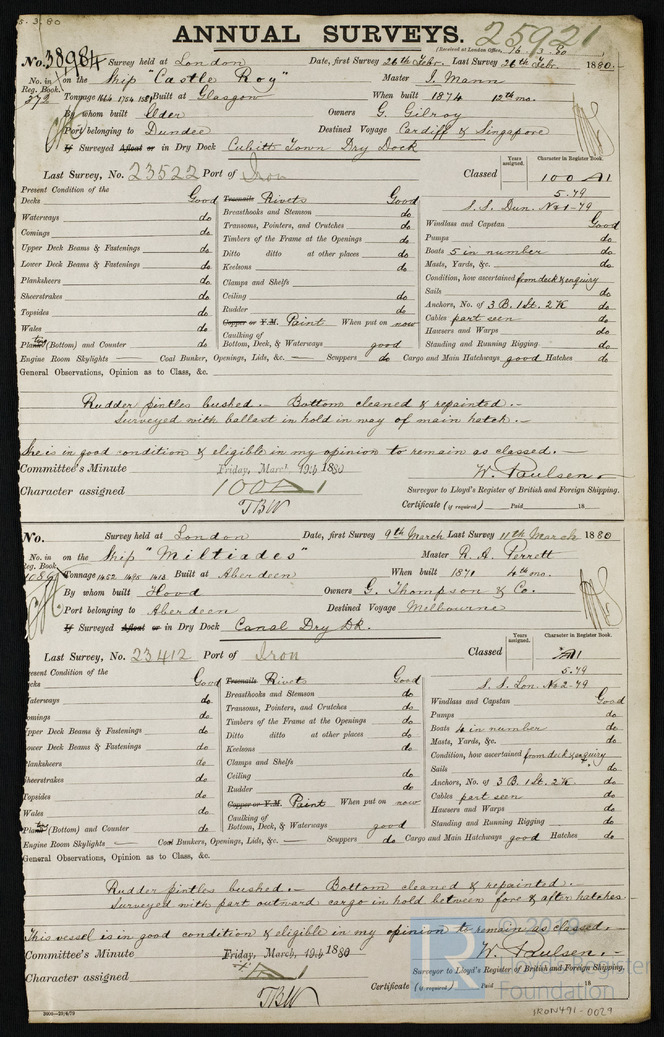 5.3.80
ANNUAL SURVEYS.
25921
(Received at London Office, 16.3.80
No. 38984 Survey held at London Date, first Survey 26th Febr. Last Survey 26th Febr. 1880.
No. in Reg. Book. on the Ship "Castle Roy" Master I. Mann
372 Tonnage 1664 1754 1581 Built at Glasgow When built 1874 12th mo.
By whom built Elder Owners G. Gilroy
Port belonging to Dundee Destined Voyage Cardiff & Singapore
If Surveyed Afloat or in Dry Dock Cubitt Town Dry Dock
Last Survey, No. 23522 Port of Iron Classed
Years assigned. Character in Register Book.
100 A1
5.79
S.S. Dun. No1-79
Present Condition of the
Decks Good
Waterways do
Comings do
Upper Deck Beams & Fastenings do
Lower Deck Beams & Fastenings do
Planksheers do
Sheerstrakes do
Topsides do
Wales do
Plating (Bottom) and Counter do
Treenails Rivets Good
Breasthooks and Stemson do
Transoms, Pointers, and Crutches do
Timbers of the Frame at the Openings do
Ditto ditto at other places do
Keelsons do
Clamps and Shelfs
Ceiling do
Rudder do
Copper or Y.M. Paint When put on now
Caulking of Bottom, Deck, & Waterways good
Windlass and Capstan Good
Pumps do
Boats 5 in number do
Masts, Yards, &c. do
Condition, how ascertained from deck & enquiry
Sails do
Anchors, No. of 3 B. 1 St. 2 K do
Cables part seen do
Hawsers and Warps do
Standing and Running Rigging do
Engine Room Skylights — Coal Bunker, Openings, Lids, &c. — Scuppers do Cargo and Main Hatchways good Hatches do
General Observations, Opinion as to Class, &c.
Rudder pintles bushed. — Bottom cleaned & repainted. —
Surveyed with ballast in hold in way of main hatch. —
She is in good condition & eligible in my opinion to remain as classed. —
Committee's Minute Friday, March 19th 1880
W. Paulsen
Character assigned 100A1
Surveyor to Lloyd's Register of British and Foreign Shipping.
TBW
Certificate (if required) Paid 18
No. Survey held at London Date, first Survey 9th March Last Survey 11th March 1880
No. in Reg. Book. on the Ship "Miltiades" Master R. A. Perrett
Tonnage 1452 1495 1413 Built at Aberdeen When built 1871 4th mo.
By whom built Hood Owners G. Thompson & Co.
Port belonging to Aberdeen Destined Voyage Melbourne
If Surveyed Afloat or in Dry Dock Canal Dry Dk.
Last Survey, No. 23412 Port of Iron Classed
Years assigned. Character in Register Book.
A1
5.79
S.S. Lon. No2-79
Present Condition of the
Decks Good
Waterways do
Comings do
Upper Deck Beams & Fastenings do
Lower Deck Beams & Fastenings do
Planksheers do
Sheerstrakes do
Topsides do
Wales do
Plating (Bottom) and Counter do
Treenails Rivets Good
Breasthooks and Stemson do
Transoms, Pointers, and Crutches do
Timbers of the Frame at the Openings do
Ditto ditto at other places do
Keelsons do
Clamps and Shelfs
Ceiling do
Rudder do
Copper or Y.M. Paint When put on now
Caulking of Bottom, Deck, & Waterways good
Windlass and Capstan Good
Pumps do
Boats 4 in number do
Masts, Yards, &c. do
Condition, how ascertained from deck & enquiry
Sails do
Anchors, No. of 3 B. 1 St. 2 K do
Cables part seen do
Hawsers and Warps do
Standing and Running Rigging do
Engine Room Skylights — Coal Bunkers, Openings, Lids, &c. — Scuppers do Cargo and Main Hatchways good Hatches do
General Observations, Opinion as to Class, &c.
Rudder pintles bushed. — Bottom cleaned & repainted. —
Surveyed with part outward cargo in hold between fore & after hatches —
This vessel is in good condition & eligible in my opinion to remain as classed. —
Committee's Minute Friday, March, 19th 1880
W. Paulsen. —
Character assigned A1
Surveyor to Lloyd's Register of British and Foreign Shipping.
TBW
Certificate (if required) Paid 18
© 2019
Lloyd's Register
Foundation
IRON491-0029